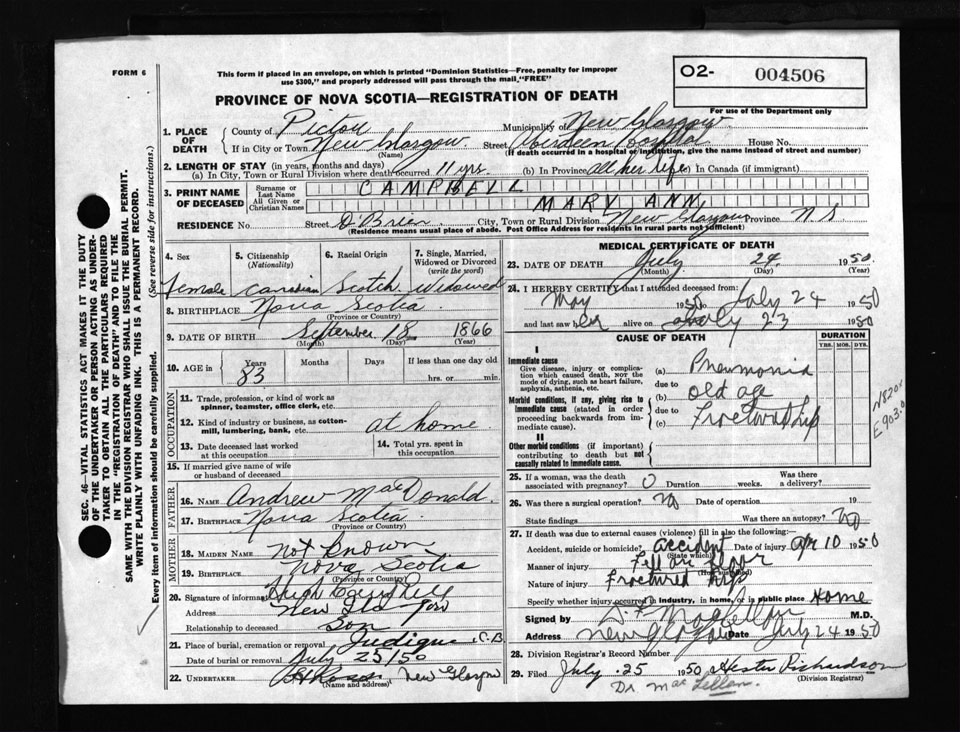 FORM 6
This form if placed in an envelope, on which is printed "Dominion Statistics—Free, penalty for improper
use $300," and properly addressed will pass through the mail, "FREE"
O2- 004506
For use of the Department only
PROVINCE OF NOVA SCOTIA—REGISTRATION OF DEATH
1. PLACE OF DEATH
County of Pictou Municipality of New Glasgow
If in City or Town New Glasgow Street Aberdeen Hospital House No.
(Name) (If death occurred in a hospital or institution, give the name instead of street and number)
2. LENGTH OF STAY (in years, months and days)
(a) In City, Town or Rural Division where death occurred 11 yrs. (b) In Province All her life In Canada (if immigrant)
3. PRINT NAME OF DECEASED
Surname or Last Name CAMPBELL
All Given or Christian Names MARY ANN
RESIDENCE No. Street O'Brien City, Town or Rural Division New Glasgow Province N.S
(Residence means usual place of abode. Post Office Address for residents in rural parts not sufficient)
4. Sex
Female
5. Citizenship
(Nationality)
Canadian
6. Racial Origin
Scotch
7. Single, Married,
Widowed or Divorced
(write the word)
Widowed
8. BIRTHPLACE Nova Scotia
(Province or Country)
9. DATE OF BIRTH September 18 1866
(Month) (Day) (Year)
10. AGE in Years Months Days If less than one day old
83 hrs. or min.
OCCUPATION
11. Trade, profession, or kind of work as
spinner, teamster, office clerk, etc.
12. Kind of industry or business, as cotton-
mill, lumbering, bank, etc. at home
13. Date deceased last worked
at this occupation
14. Total yrs. spent in
this occupation
15. If married give name of wife
or husband of deceased
FATHER
16. NAME Andrew MacDonald
17. BIRTHPLACE Nova Scotia
(Province or Country)
MOTHER
18. MAIDEN NAME not known
19. BIRTHPLACE Nova Scotia
(Province or Country)
20. Signature of informant Hugh Campbell
Address New Glasgow
Relationship to deceased Son
21. Place of burial, cremation or removal Judique C.B
Date of burial or removal July 25/50
22. UNDERTAKER New Glasgow
(Name and address)
MEDICAL CERTIFICATE OF DEATH
23. DATE OF DEATH July 24 1950
(Month) (Day) (Year)
24. I HEREBY CERTIFY that I attended deceased from:
May 1950 to July 24 1950
and last saw her alive on July 23 1950
CAUSE OF DEATH
DURATION
YRS. MOS. DYS.
I
Immediate cause
Give disease, injury or complica-
tion which caused death, NOT the
mode of dying, such as heart failure,
asphyxia, asthenia, etc.
(a) Pneumonia
due to
Morbid conditions, if any, giving rise to
immediate cause (stated in order
proceeding backwards from im-
mediate cause).
(b) old age
due to
(c) Fractured hip
N820x
E903.0
II
Other morbid conditions (if important)
contributing to death but not
causally related to immediate cause.
25. If a woman, was the death
associated with pregnancy? 0 Duration weeks. Was there
a delivery?
26. Was there a surgical operation? no Date of operation 19
State findings Was there an autopsy? no
27. If death was due to external causes (violence) fill in also the following:
Accident, suicide or homicide? accident Date of injury Apr 10 1950
(State which)
Manner of injury Fell on floor
Nature of injury Fractured hip
Specify whether injury occurred in industry, in home, or in public place Home
Signed by MacLellan M.D.
Address New Glasgow Date July 24 1950
28. Division Registrar's Record Number
29. Filed July 25 1950 Hester Richardson
(Division Registrar)
Dr MacLellan.
SEC. 46—VITAL STATISTICS ACT MAKES IT THE DUTY
OF THE UNDERTAKER OR PERSON ACTING AS UNDER-
TAKER TO OBTAIN ALL THE PARTICULARS REQUIRED
IN THE "REGISTRATION OF DEATH" AND TO FILE THE
SAME WITH THE DIVISION REGISTRAR WHO SHALL ISSUE THE BURIAL PERMIT.
WRITE PLAINLY WITH UNFADING INK. THIS IS A PERMANENT RECORD.
Every item of information should be carefully supplied. (See reverse side for instructions.)